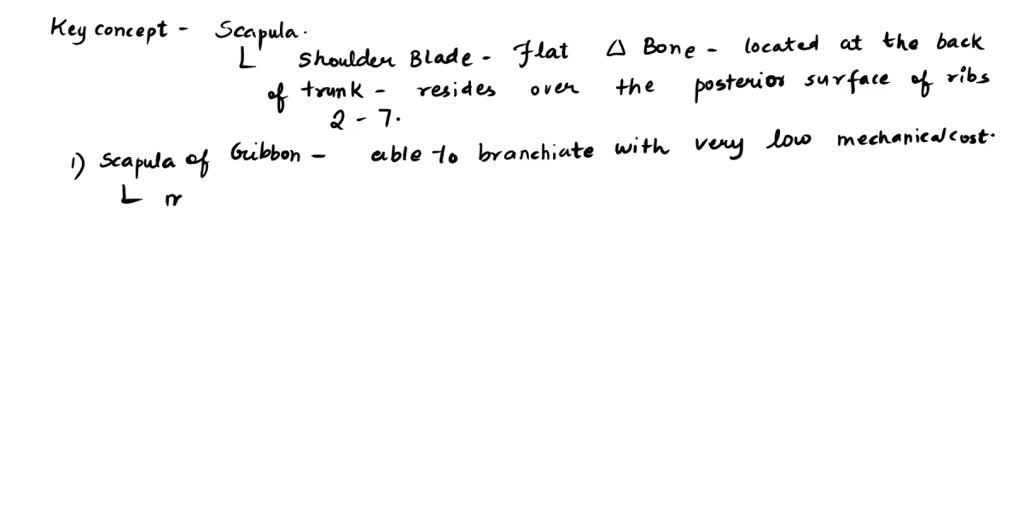 Key concept - Scapula.
L Shoulder Blade - Flat Δ Bone - located at the back
of trunk - resides over the posterior surface of ribs
2 - 7.
1) Scapula of Gibbon - able to branchiate with very low mechanical cost.
L m